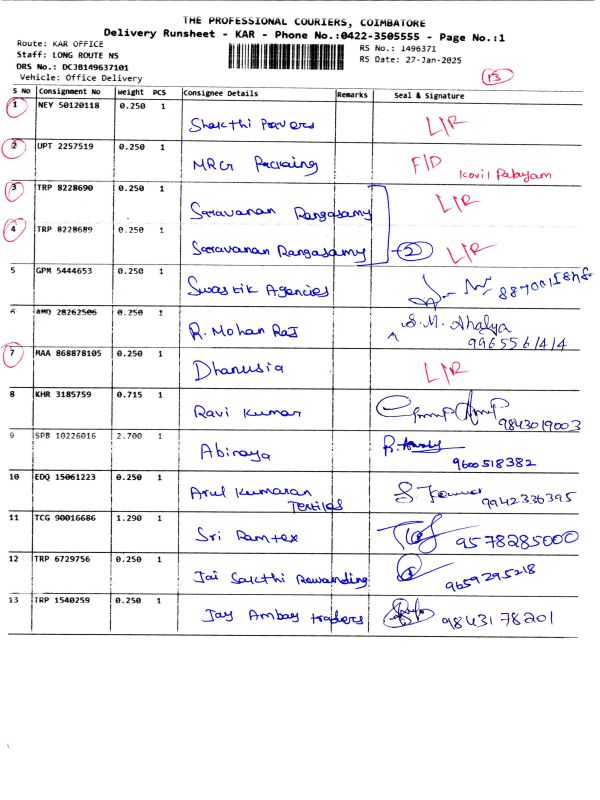 THE PROFESSIONAL COURIERS, COIMBATORE
Delivery Runsheet - KAR - Phone No.:0422-3505555 - Page No.:1
Route: KAR OFFICE
Staff: LONG ROUTE NS
DRS No.: DCJB149637101
Vehicle: Office Delivery
RS No.: 1496371
RS Date: 27-Jan-2025
13
S No Consignment No Weight PCS Consignee Details Remarks Seal & Signature
1 NEY 50120118 0.250 1 Shakthi Pavers L/R
2 UPT 2257519 0.250 1 MRG Packaing F/D Kovil Palayam
3 TRP 8228690 0.250 1 Saravanan Rangasamy L/R
4 TRP 8228689 0.250 1 Saravanan Rangasamy 2 L/R
5 GPM 5444653 0.250 1 Swastik Agencies
6 AMD 28262506 0.250 1 R. Mohan Raj S.M. Ahalya
9965561414
7 MAA 868878105 0.250 1 Dhanusia L/R
8 KHR 3185759 0.715 1 Ravi Kumar 9843019003
9 SPB 10226016 2.700 1 Abiraya
9600518382
10 EDQ 15061223 0.250 1 Arul Kumaran
Textiles 9942336395
11 TCG 90016686 1.290 1 Sri Ramtex 9578285000
12 TRP 6729756 0.250 1 Jai Sakthi Rewainding 9659295218
13 TRP 1540259 0.250 1 Jay Ambay traders 9843178201